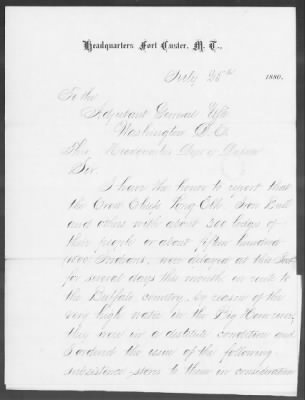 Headquarters Fort Custer, M. T.,
July 25th 1880.
To the
Adjutant General USA
Washington D.C.
Thro' Headquarters Dept of Dakota
Sir.
I have the honor to report that
the Crow Chiefs, Long Elk, Iron Bull
and others with about 300 lodges of
their people or about fifteen hundred
(1500) Indians, were delayed at this Post
for several days this month en route to
the Buffalo country, by reason of the
very high water in the Big Horn river;
they were in a destitute condition and
I ordered the issue of the following
subsistence stores to them in consideration